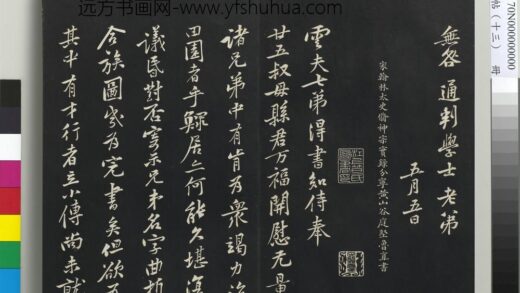 远方书画网-www.yfshuhua.com
無咎通判學士老弟
五月五日
家翰林太史脩神宗實錄分寧黃山谷庭堅魯直書
雲夫七弟得書知侍奉
廿五叔母縣君万福開慰无量
諸兄弟中有肯為衆竭力治
田園者乎鰥居亦何能久堪
議昏對否寄示兄弟名字曲折
合族圖成為完書矣但欲
其中有才行者立小傳尚未就
帖(十三)